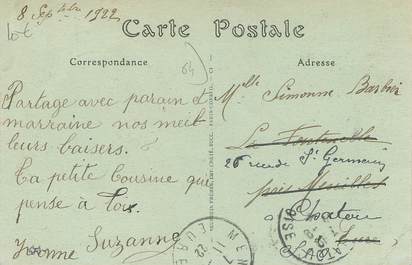 8 Septbre 1922
Carte Postale
Correspondance
Adresse
64
Partage avec parain et
marraine nos meil
leurs baisers.
Ta petite Cousine qui
pense à toi.
Suzanne
Yvonne
Melle Simonne Barbier
La Fontenelle
26 rue de St Germain
par
à Chatou
S. & O.
Eure